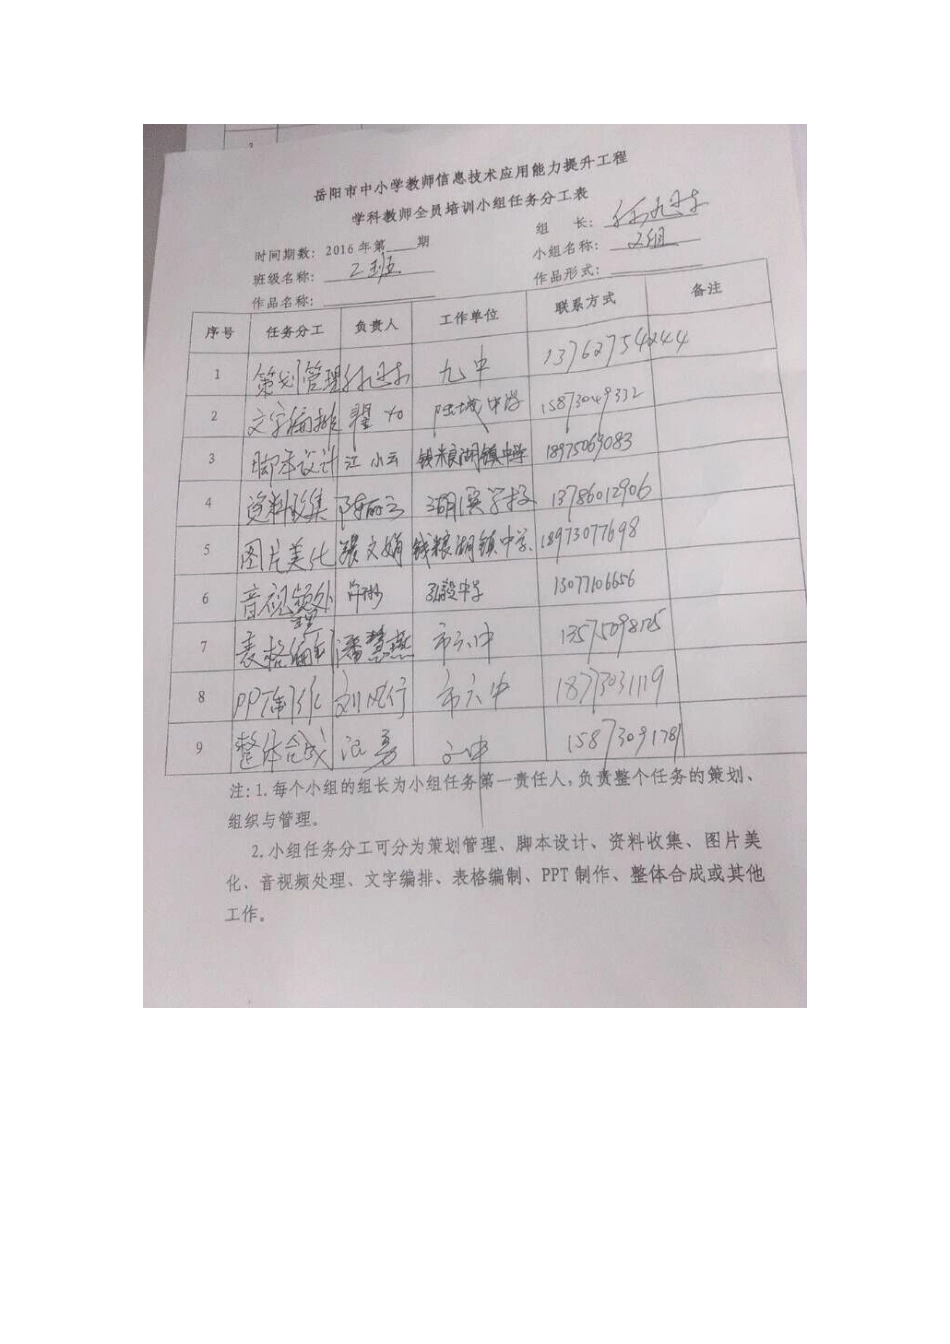 岳阳市中小学教师信息技术应用能力提升工程
学科教师全员培训小组任务分工表
时间期数：2016年第____期 组 长：
班级名称：2班 小组名称：2组
作品名称： 作品形式：
序号 任务分工 负责人 工作单位 联系方式 备注
1 策划管理 九中 13762754244
2 文字编排 翟 陆城中学 15873049332
3 脚本设计 江小云 钱粮湖镇中学 18975069083
4 资料收集 陈丽云 湖滨学校 13786012906
5 图片美化 张文娟 钱粮湖镇中学 18973077698
6 音视频处理 许 弘毅中学 13077106656
7 表格编制 潘慧燕 市六中
8 PPT制作 刘 市六中 18773031119
9 整体合成 勇 中 15873091781
注：1.每个小组的组长为小组任务第一责任人，负责整个任务的策划、
组织与管理。
2.小组任务分工可分为策划管理、脚本设计、资料收集、图片美
化、音视频处理、文字编排、表格编制、PPT 制作、整体合成或其他
工作。